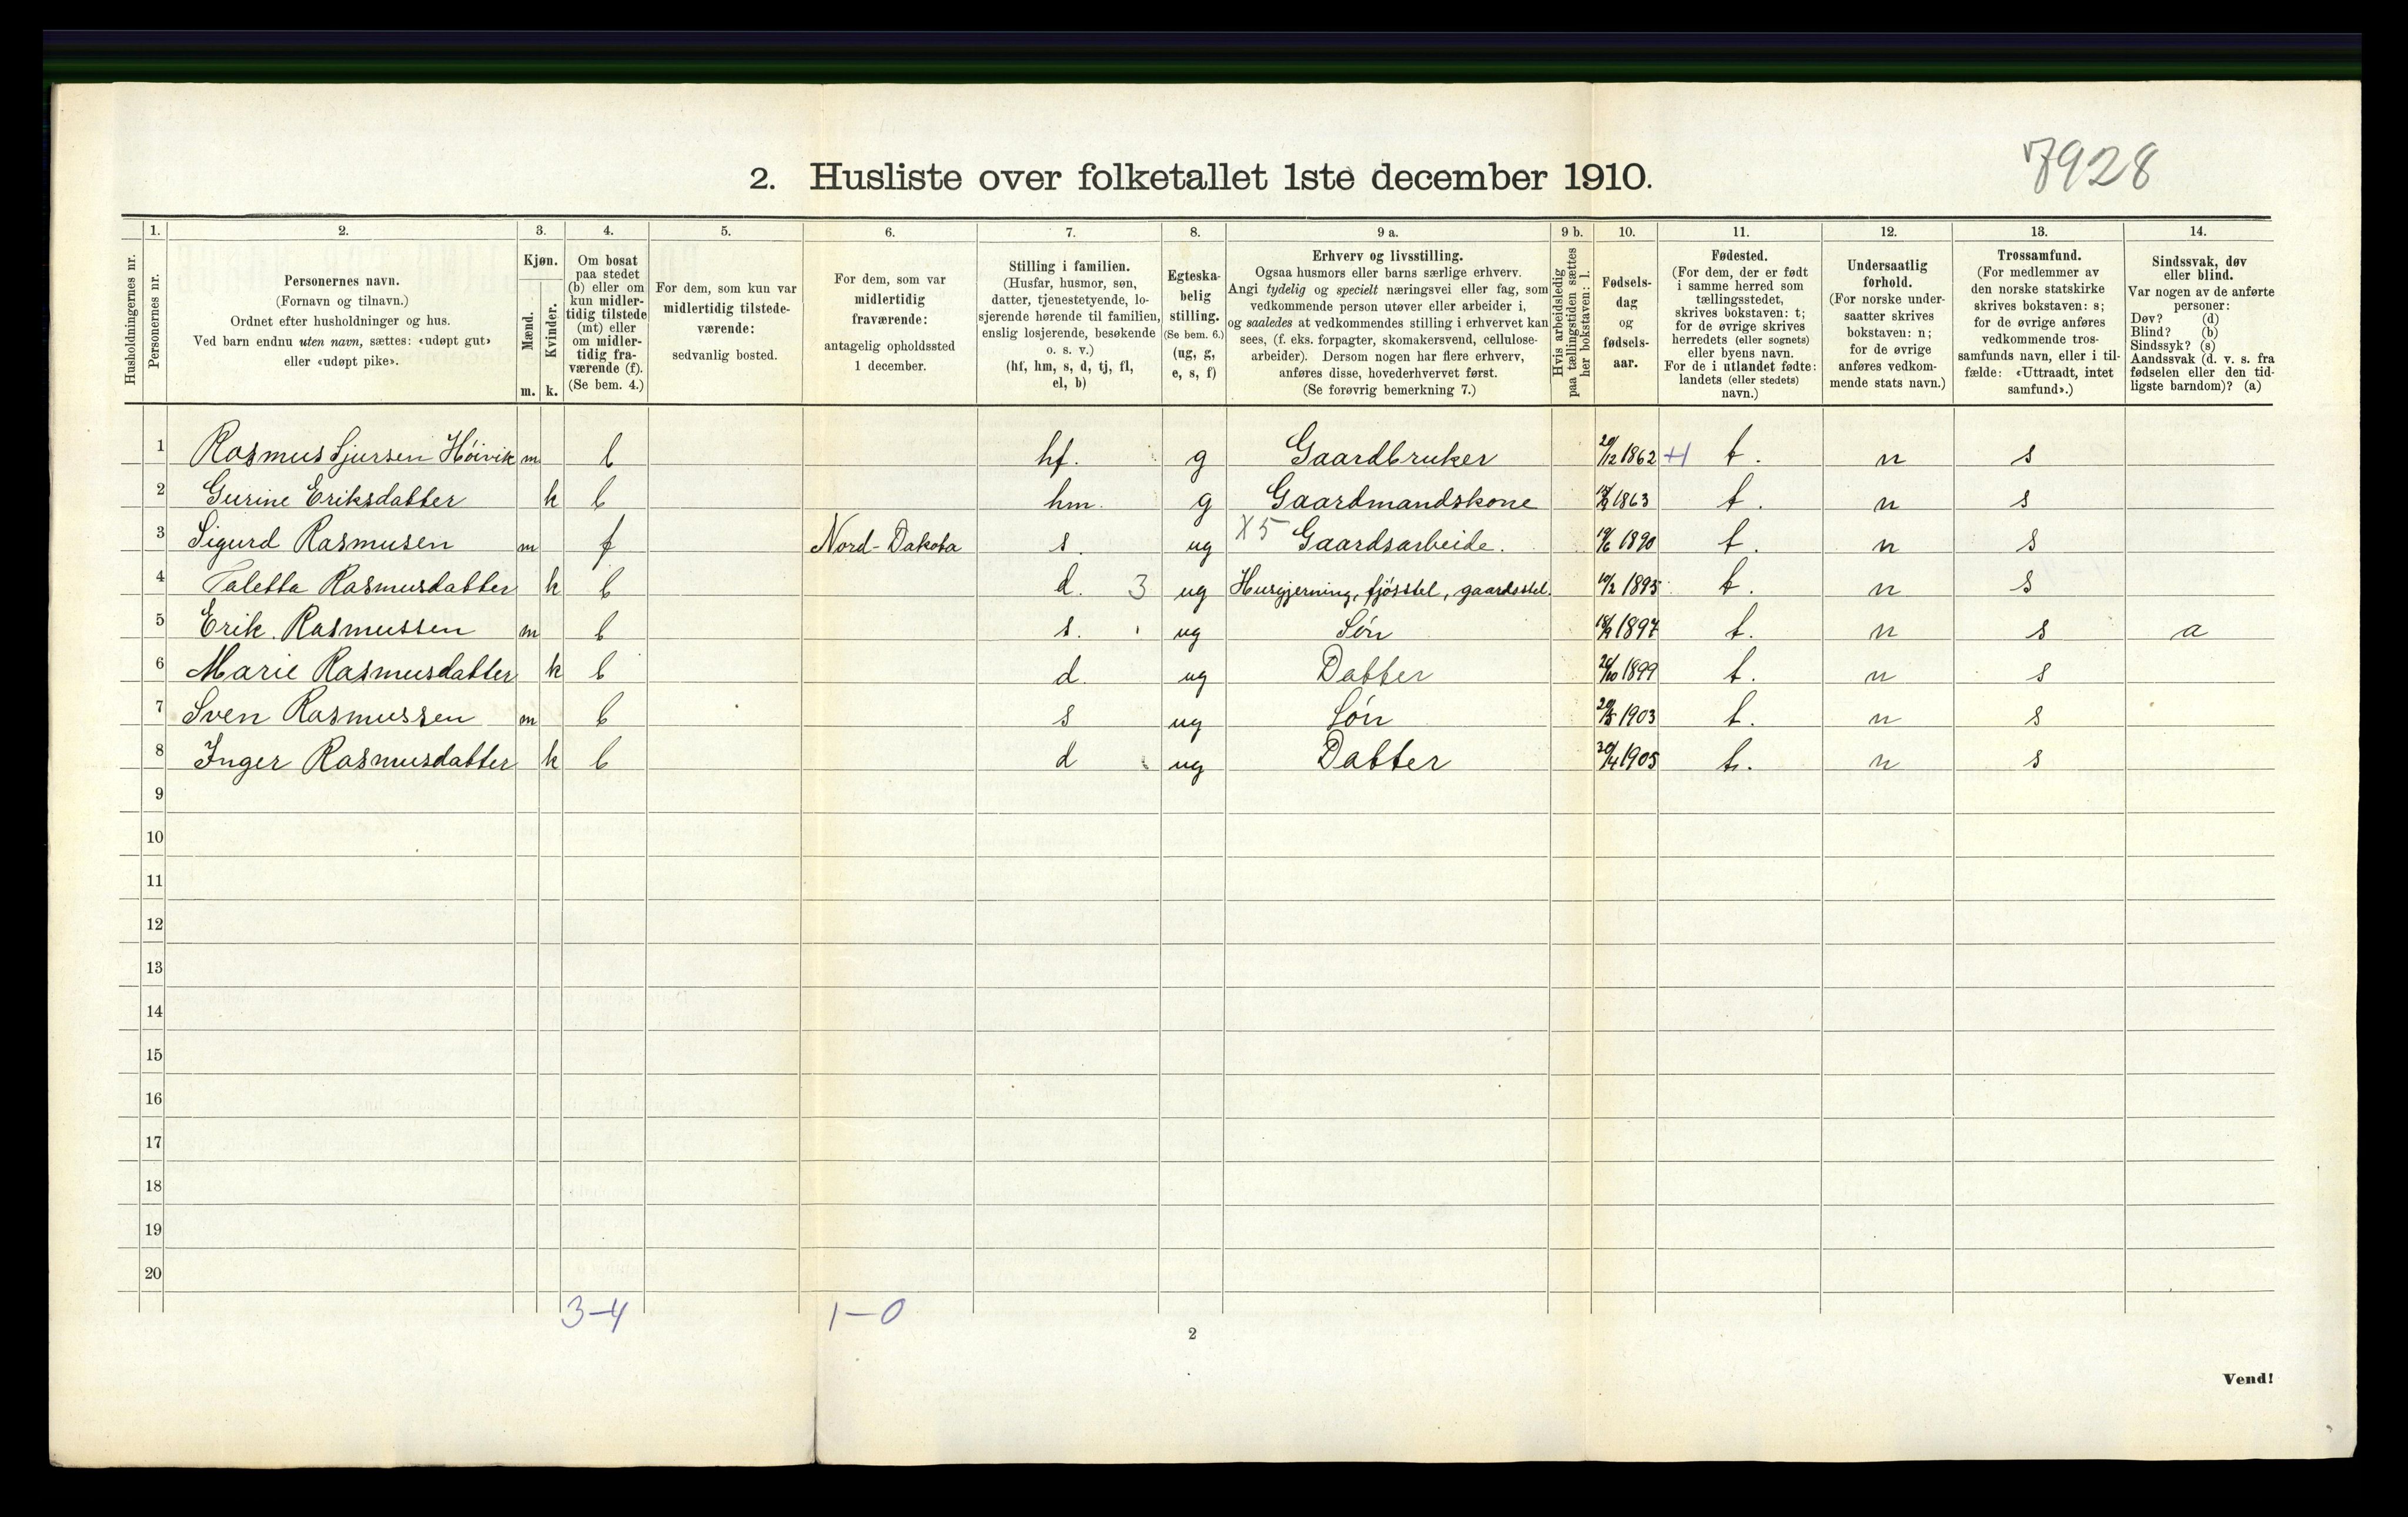 2. Husliste over folketallet 1ste december 1910.
7928
Husholdningernes nr.
1.
Personernes nr.
2.
Personernes navn.
(Fornavn og tilnavn.)
Ordnet efter husholdninger og hus.
Ved barn endnu uten navn, sættes: «udøpt gut»
eller «udøpt pike».
3.
Kjøn.
Mænd.
Kvinder.
m. k.
4.
Om bosat
paa stedet
(b) eller om
kun midler-
tidig tilstede
(mt) eller
om midler-
tidig fra-
værende (f).
(Se bem. 4.)
5.
For dem, som kun var
midlertidig tilstede-
værende:
sedvanlig bosted.
6.
For dem, som var
midlertidig
fraværende:
antagelig opholdssted
1 december.
7.
Stilling i familien.
(Husfar, husmor, søn,
datter, tjenestetyende, lo-
sjerende hørende til familien,
enslig losjerende, besøkende
o. s. v.)
(hf, hm, s, d, tj, fl,
el, b)
8.
Egteska-
belig
stilling.
(Se bem. 6.)
(ug, g,
e, s, f)
9 a.
Erhverv og livsstilling.
Ogsaa husmors eller barns særlige erhverv.
Angi tydelig og specielt næringsvei eller fag, som
vedkommende person utøver eller arbeider i,
og saaledes at vedkommendes stilling i erhvervet kan
sees, (f. eks. forpagter, skomakersvend, cellulose-
arbeider). Dersom nogen har flere erhverv,
anføres disse, hovederhvervet først.
(Se forøvrig bemerkning 7.)
9 b.
Hvis arbeidsledig
paa tællingstiden sættes
her bokstaven: l.
10.
Fødsels-
dag
og
fødsels-
aar.
11.
Fødested.
(For dem, der er født
i samme herred som
tællingsstedet,
skrives bokstaven: t;
for de øvrige skrives
herredets (eller sognets)
eller byens navn.
For de i utlandet fødte:
landets (eller stedets)
navn.)
12.
Undersaatlig
forhold.
(For norske under-
saatter skrives
bokstaven: n;
for de øvrige
anføres vedkom-
mende stats navn.)
13.
Trossamfund.
(For medlemmer av
den norske statskirke
skrives bokstaven: s;
for de øvrige anføres
vedkommende tros-
samfunds navn, eller i til-
fælde: «Uttraadt, intet
samfund».)
14.
Sindssvak, døv
eller blind.
Var nogen av de anførte
personer:
Døv? (d)
Blind? (b)
Sindssyk? (s)
Aandssvak (d. v. s. fra
fødselen eller den tid-
ligste barndom)? (a)
1 Rasmus Sjursen Höivik m b hf. g Gaardbruker 20/12 1862 t. n s
2 Gurine Eriksdatter k b hm. g Gaardmandskone 1863 t. n s
3 Sigurd Rasmusen m f Nord-Dakota s. ug X5 Gaardsarbeide. 19/6 1890 t. n s
4 Taletta Rasmusdatter k b d. 3 ug Husgjerning, fjösstel, gaardsstel. 10/2 1895 t. n s
5 Erik Rasmussen m b s. ug Sön 1897 t. n s a
6 Marie Rasmusdatter k b d. ug Datter 26/10 1899 t. n s
7 Sven Rasmussen m b s ug Sön 1903 t. n s
8 Inger Rasmusdatter k b d ug Datter 30/4 1905 t. n s
9
10
11
12
13
14
15
16
17
18
19
20
3-4 1-0
2
Vend!